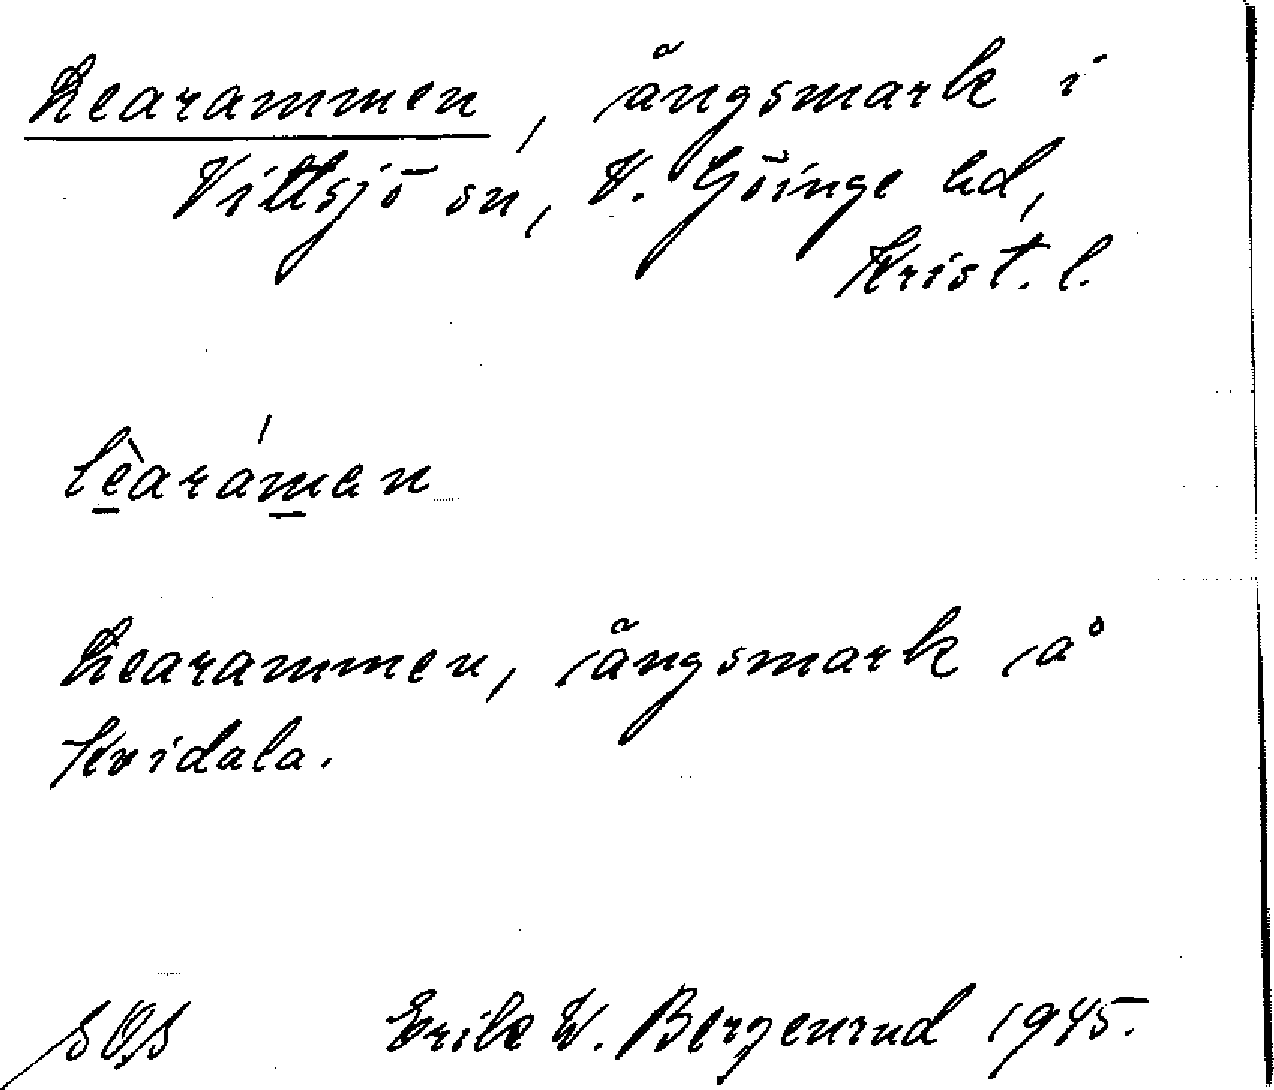 Learammen, ängsmark i
Vittsjö sn, V. Göinge hd,
Krist. l.
lèaráman
Learammen, ängsmark å
Kvidala.
Erik W. Bergenrud 1945.